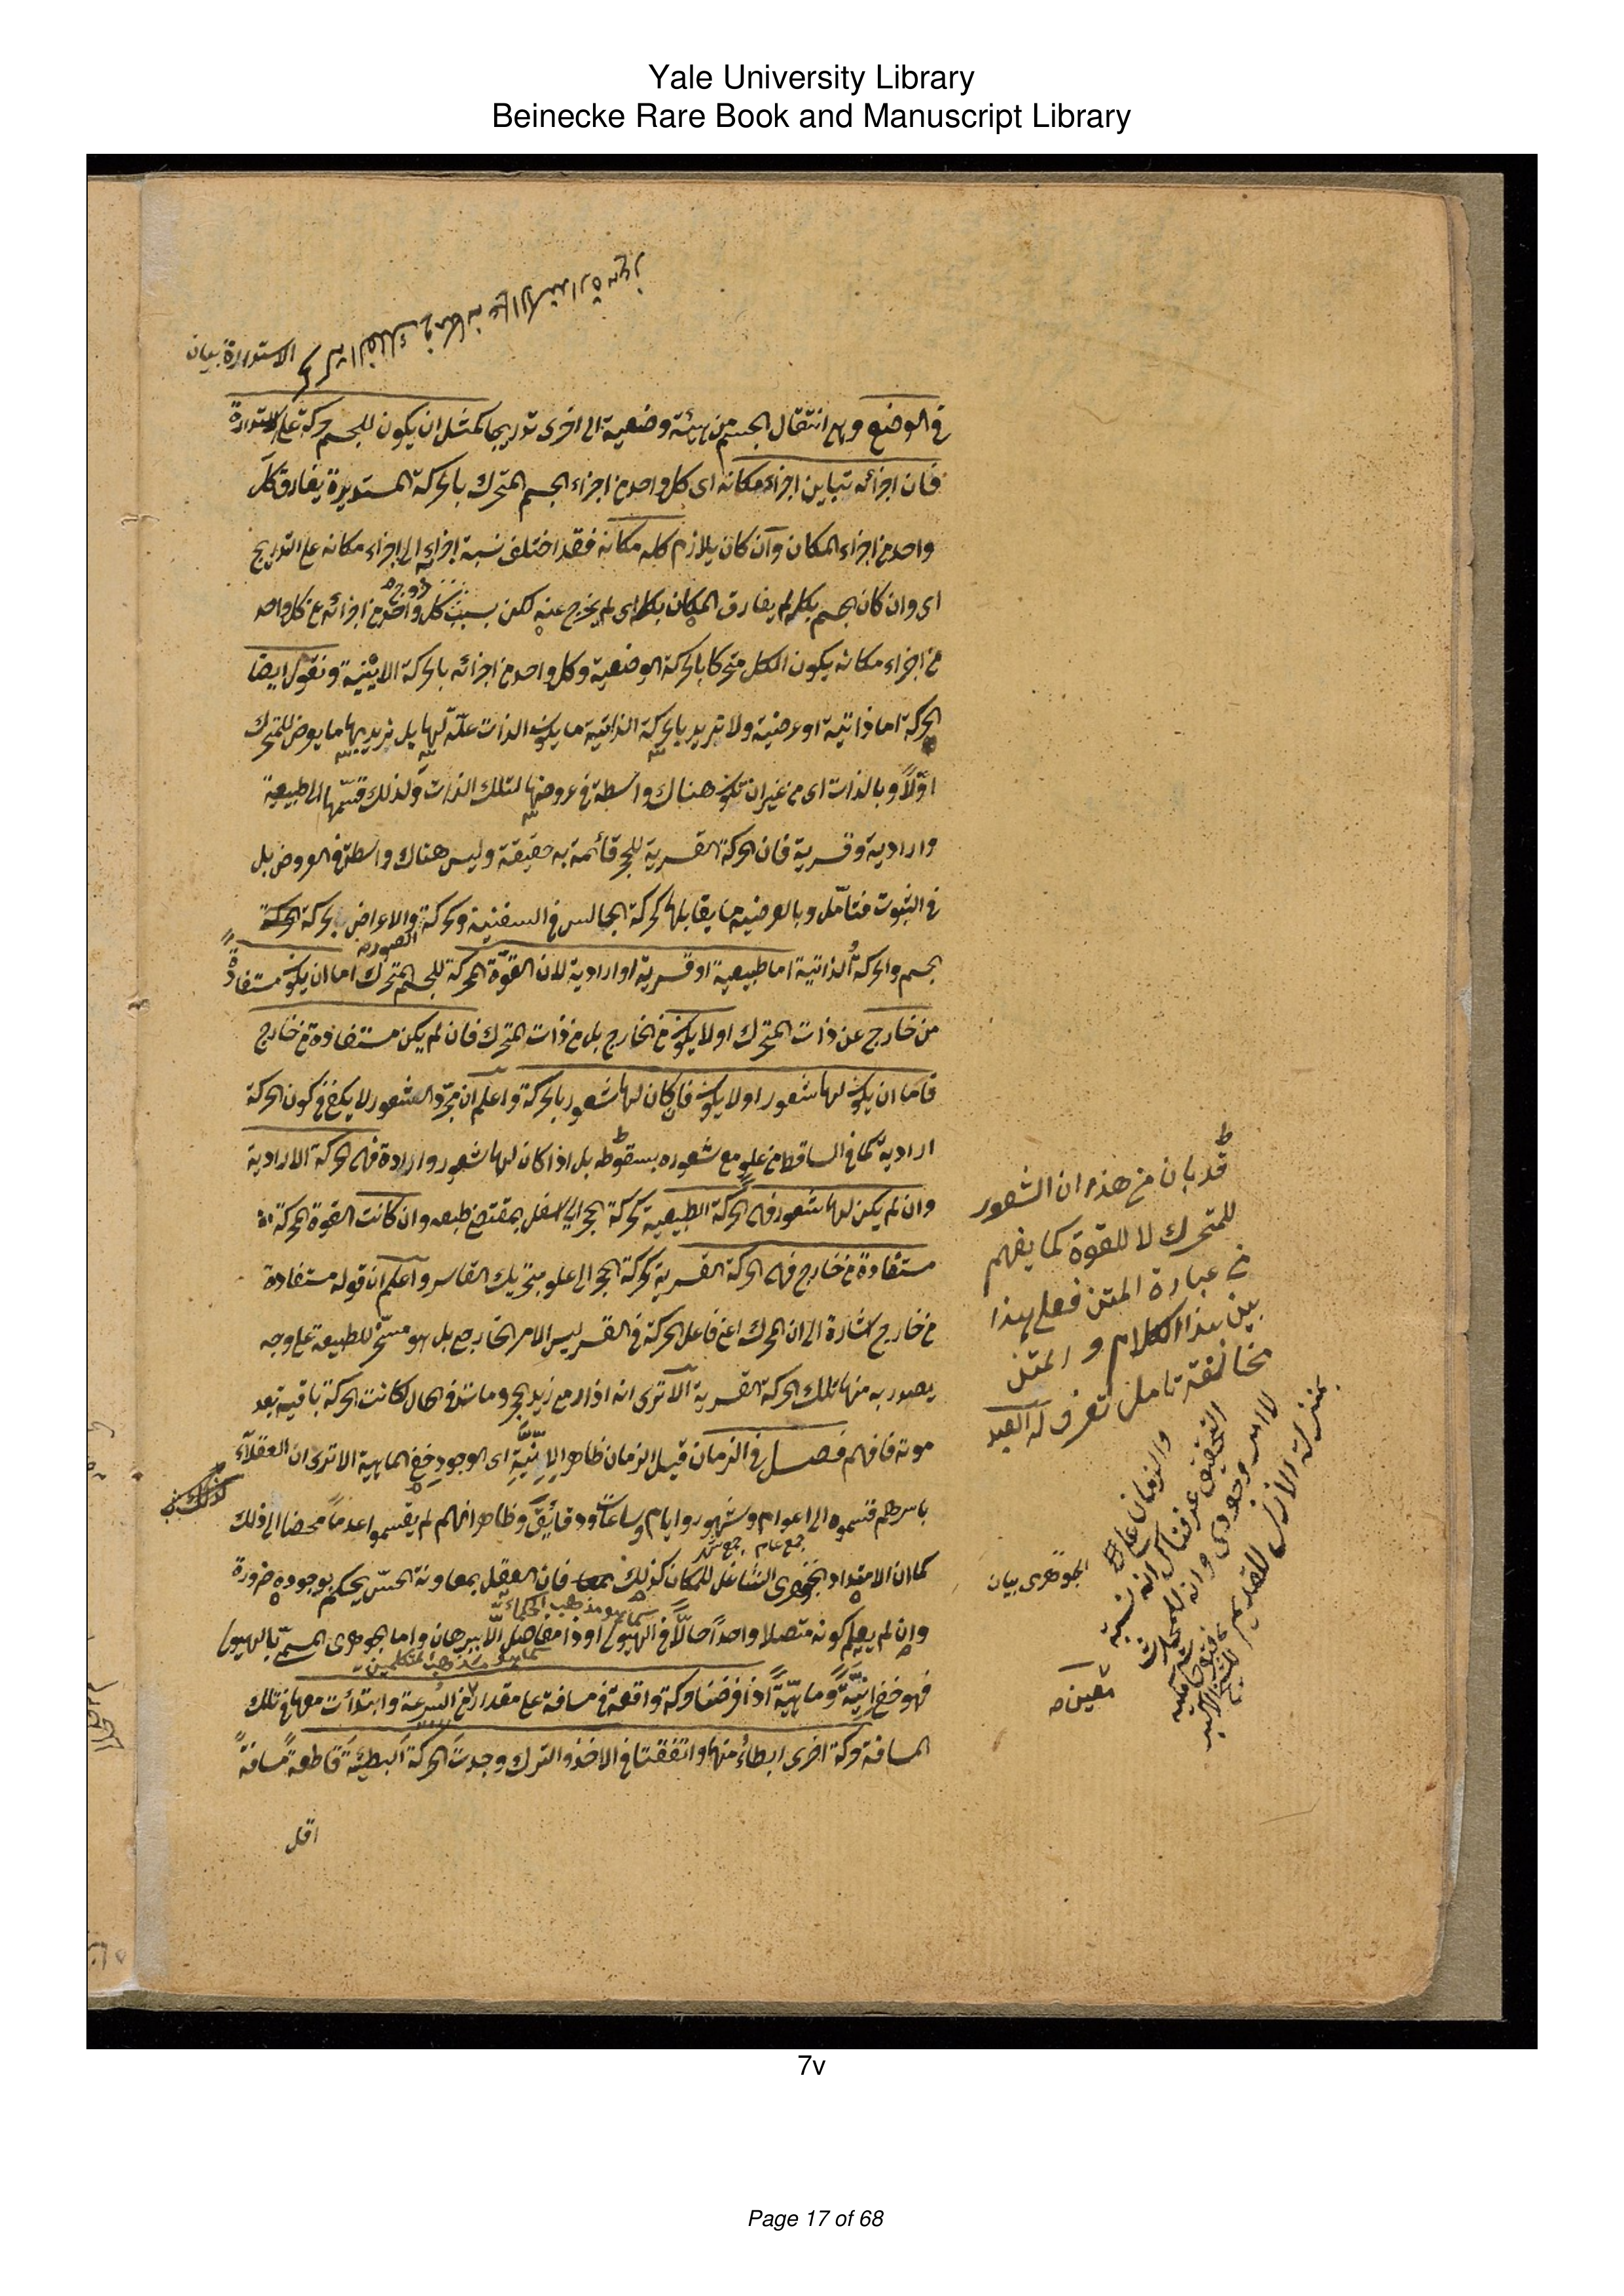 Yale University Library
Beinecke Rare Book and Manuscript Library
كحركة الفلك في مكانه على الاستدارة
الاستدارة بيان
في الوضع وهي انتقال الجسم من هيئة وضعية الى اخرى تدريجا كمثل ان يكون للجسم حركة على الاستدارة
فان اجزائه تباين اجزاء مكانه اى كل واحد من اجزاء الجسم المتحرك بالحركة المستديرة يفارق كل
واحد من اجزاء المكان وان كان يلازم كله مكانه فقد اختلف نسبة اجزائه الى اجزاء مكانه على التدريج
اى وان كان الجسم بكله لم يفارق المكان بكله اى لم يخرج عنه لكن بسبب خروج كل واحد من اجزائه عن كل واحد
من اجزاء مكانه يكون الكل متحركا بالحركة الوضعية وكل واحد من اجزائه بالحركة الاينية ونقول ايضا
الحركة اما ذاتية او عرضية ولا نريد بالحركة الذاتية ما يكون الذات علة لها بل نريد بها ما يعرض للمتحرك
اولا وبالذات اى من غير ان تكون هناك واسطة في عروضها لتلك الذات ولذلك قسمها الى طبيعية
وارادية وقسرية فان الحركة القسرية للحجر قائمة به حقيقة وليس هناك واسطة في العروض بل
في الثبوت فتامل وبالعرضية ما يقابلها كحركة الجالس في السفينة وحركة الصورة والاعراض بحركة
الجسم والحركة الذاتية اما طبيعية او قسرية او ارادية لان القوة المحركة للجسم المتحرك اما ان يكون مستفادة
من خارج عن ذات المتحرك او لا يكون من الخارج بل من ذات المتحرك فان لم يكن مستفادة من خارج
فاما ان يكون لها شعور او لا يكون فان كان لها شعور بالحركة واعلم ان مجرد الشعور لا يكفي في كون الحركة
ارادية كما في الساقط من علو مع شعوره بسقوطه بل اذا كان لها شعور وارادة فهى الحركة الارادية
وان لم يكن لها شعور فهى الحركة الطبيعية كحركة الحجر الى السفل بمقتضى طبعه وان كانت القوة المحركة
مستفادة من خارج فهى الحركة القسرية كحركة الحجر الى علو بتحريك القاسر واعلم ان قوله مستفادة
من خارج اشارة الى ان المحرك اعنى فاعل الحركة في القسر ليس الامر الخارجى بل هو مسخر للطبيعة على وجه
يصدر به منها تلك الحركة القسرية الا ترى انه اذا رمى زيد الحجر ومات في الحال كانت الحركة باقية بعد
موته فافهم فصل في الزمان قيل الزمان ظاهر الانية اى الوجود خفى الماهية الا ترى ان العقلاء
باسرهم قسموه الى اعوام وشهور وايام وساعات ودقائق وظاهر انهم لم يقسموا عدما محضا الى ذلك
جمع عام
كما ان الامتداد الجوهرى الشاغل للمكان كذلك فان العقل بمعاونة الحس يحكم بوجوده ضرورة
كما هو مذهب الحكماء
وان لم يعلم كونه متصلا واحدا حالا في الهيولى او ذا مفاصل الا ببرهان واما الجوهرى المسمى بالهيولى
كما هو مذهب المتكلمين
فهو خفى انية وماهية اذا فرضنا حركة واقعة في مسافة على مقدار من السرعة وابتدأت معها في تلك
المسافة حركة اخرى ابطاء منها واتفقتا في الاخذ والترك وجدت الحركة البطيئة قاطعة مسافة
اقل
قد بان من هذا ان الشعور
للمتحرك لا للقوة كما يفهم
من عبارة المتن فعلى هذا
بين هذا الكلام و المتن
مخالفة تامل تعرف
الجوهرى بيان
7v
Page 17 of 68